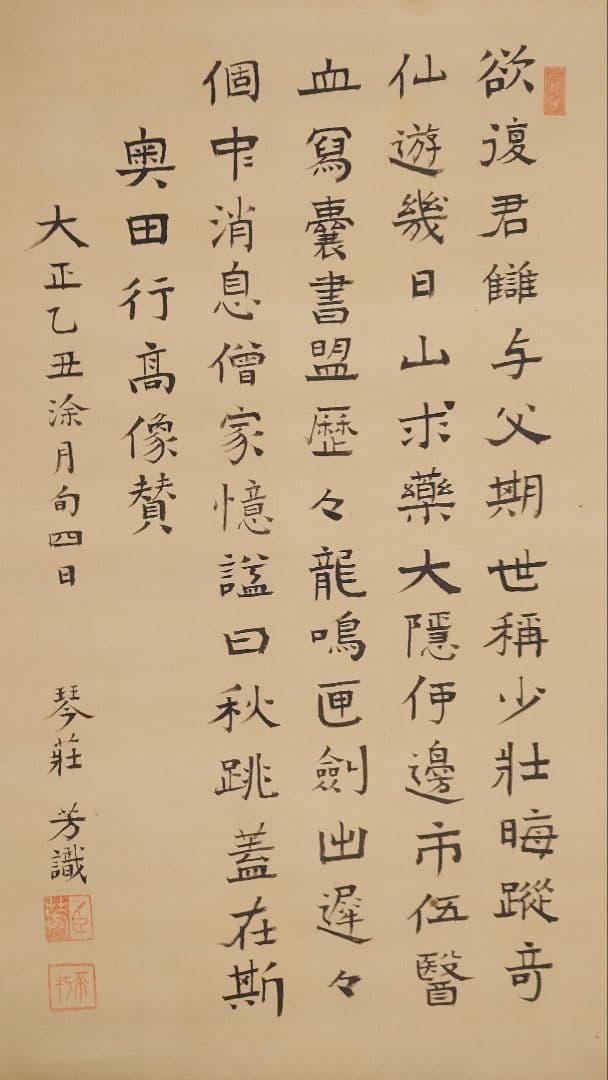 欲復君讎与父期世稱少壯晦蹤奇
仙遊幾日山求藥大隱伊邊市伍醫
血寫囊書盟歷々龍鳴匣劍出遲々
個中消息僧家憶謚曰秋跳蓋在斯
奥田行高像賛
大正乙丑涂月旬四日 琴莊 芳識